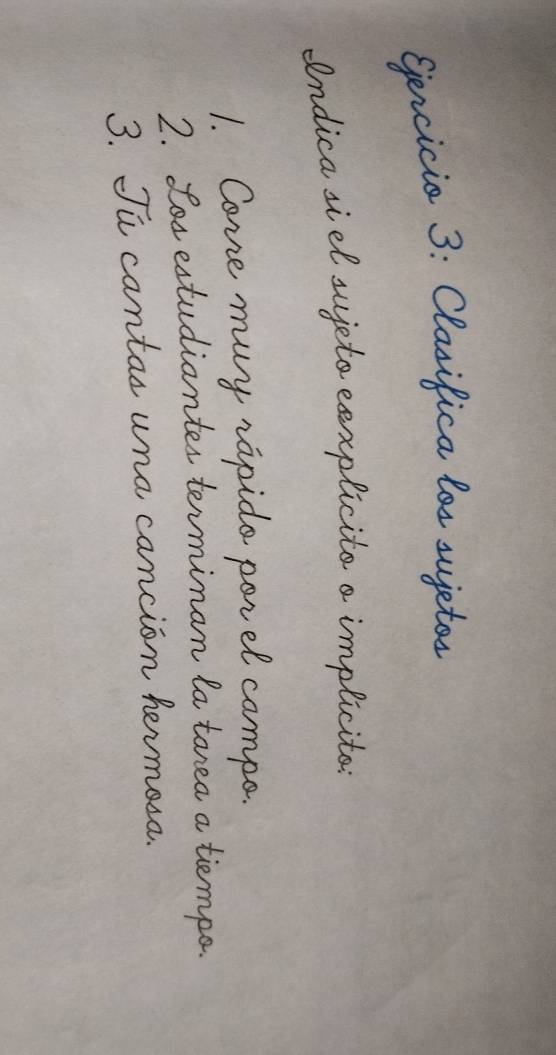 Ejercicio 3: Clasifica los sujetos
Indica si el sujeto eexplícito o implícito:
1. Corre muy rápido por el campo.
2. Los estudiantes terminan la tarea a tiempo.
3. Tú cantas una canción hermosa.